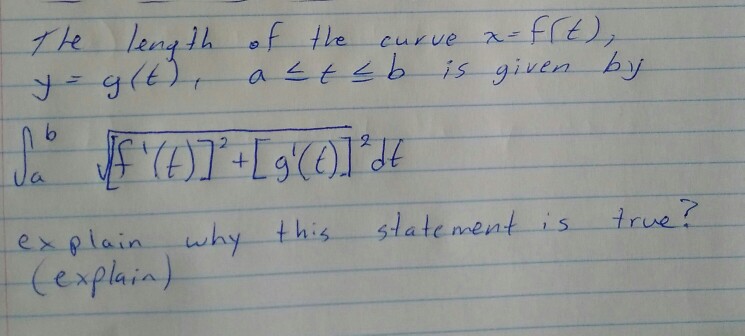 The length of the curve x=f(t),
y = g(t), a ≤ t ≤ b is given by
∫_a^b √[f'(t)]²+[g'(t)]² dt
explain why this statement is true?
(explain)